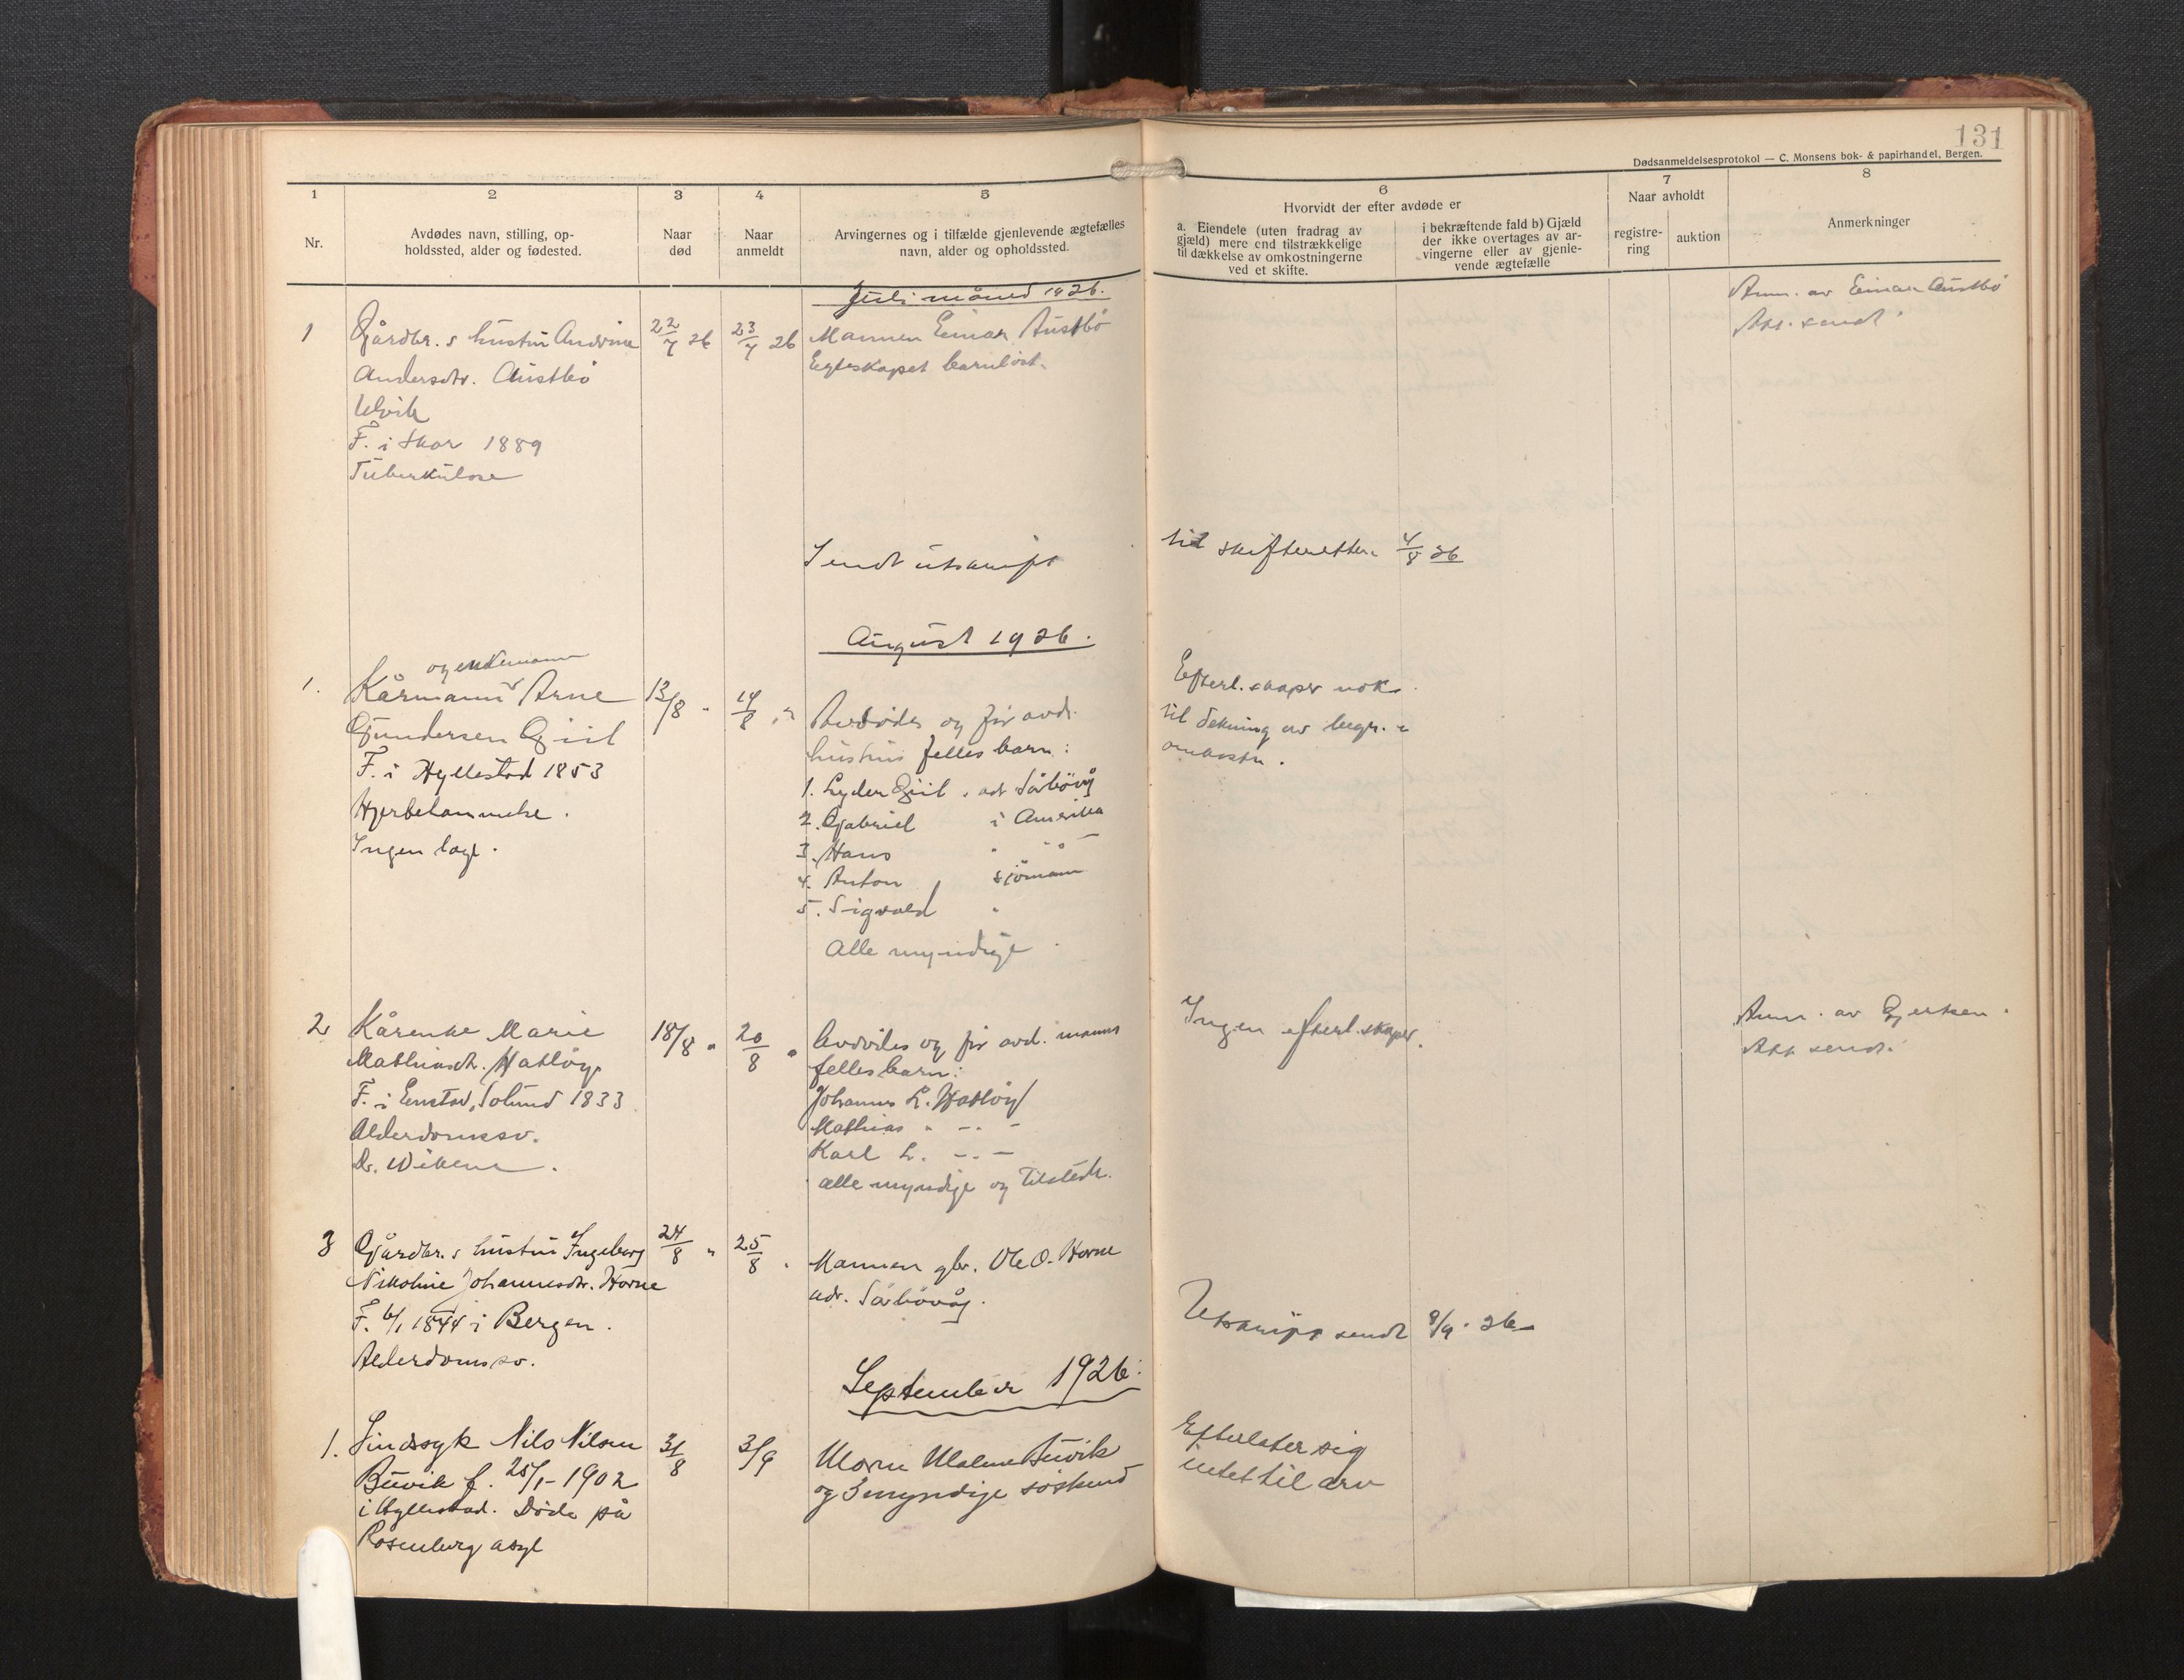 131
Dødsanmeldelsesprotokol — C. Monsens bok- & papirhandel, Bergen.
1
Nr.
2
Avdødes navn, stilling, op-
holdssted, alder og fødested.
3
Naar
død
4
Naar
anmeldt
5
Arvingernes og i tilfælde gjenlevende ægtefælles
navn, alder og opholdssted.
6
Hvorvidt der efter avdøde er
a. Eiendele (uten fradrag av
gjæld) mere end tilstrækkelige
til dækkelse av omkostningerne
ved et skifte.
i bekræftende fald b) Gjæld
der ikke overtages av ar-
vingerne eller av gjenle-
vende ægtefælle
7
Naar avholdt
registre-
ring
auktion
8
Anmerkninger
Juli måned 1926.
1
Gårdbr.s hustru Andrine
Andersdtr. Austbö
Ulvik
F. i Skor 1889
Tuberkulose
22/7 26
23/7 26
Mannen Einar Austbö
Egteskapet barnlöst.
Anm. av Einar Austbö
Att. sendt
Sendt utskrift til skifteretten 4/8 26
August 1926.
1.
og enkemann
Kårmann Arne
Gundersen Giil
F. i Hyllestad 1853
Hjertelammelse.
Ingen læge.
13/8 "
14/8 "
Avdödes og för avd.
hustrus felles barn:
1. Lyder Giil. adr Sörbövåg
2. Gabriel i Amerika
3. Hans " "
4. Anton sjömann
5. Sigvald "
Alle myndige.
Efterl.skaper nok
til dekning av begr.
omkostn.
2
Kårenke Marie
Mathiasdtr. Hatlöy
F. i , Solund 1833
Alderdomssv.
Dr.
18/8 "
20/8 "
Avdödes og för avd. manns
felles barn:
Johannes L. Hatlöy
Mathias " -"-
Karl L. -"-
alle myndige og tilstede.
Ingen efterl.skaper.
Anm. av Gjertsen.
Att sendt.
3
Gårdbr.s hustru Ingeborg
Nikoline Johannesdtr. Horne
F. 6/1 1844 i Bergen.
Alderdomssv.
24/8 "
25/8 "
Mannen gbr. Ole O. Horne
adr. Sörbövåg.
Utskrift sendt 8/9. 26
September 1926.
1.
Sindssyk Nils Nilsen
Buvik f. 25/1-1902
i Hyllestad. Döde på
Rosenberg asyl
31/8
3/9
Moren Malene Buvik
og 3 myndige söskend
Efterlater sig
intet til arv